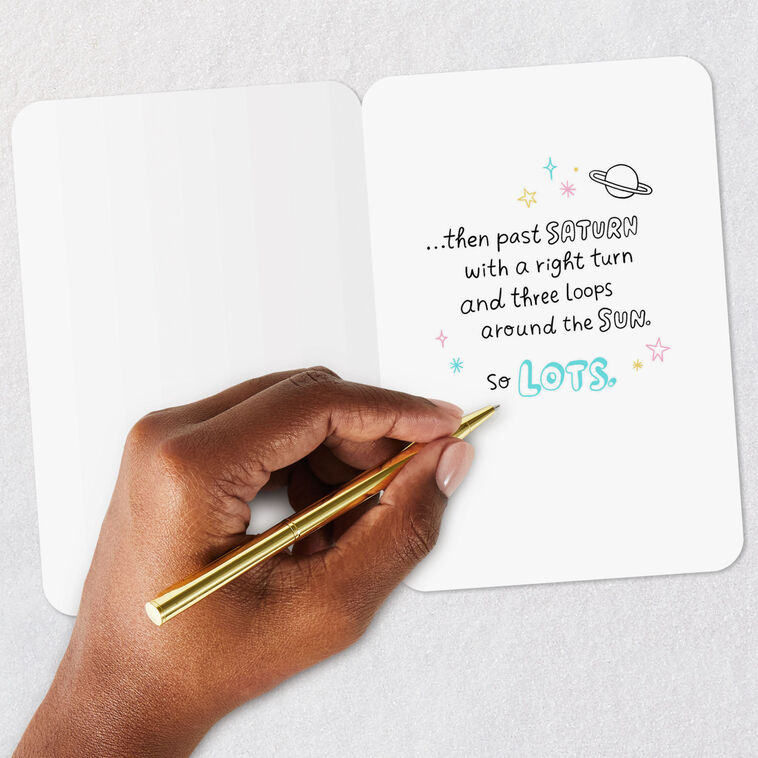 ...then past SATURN
with a right turn
and three loops
around the SUN.
so LOTS.